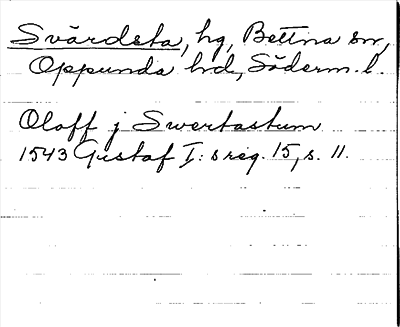 Svärdsta, hg, Bettna sn,
Oppunda hd, Söderm. l.
Oloff j Swertastum
1543 Gustaf I:s reg. 15, s. 11.